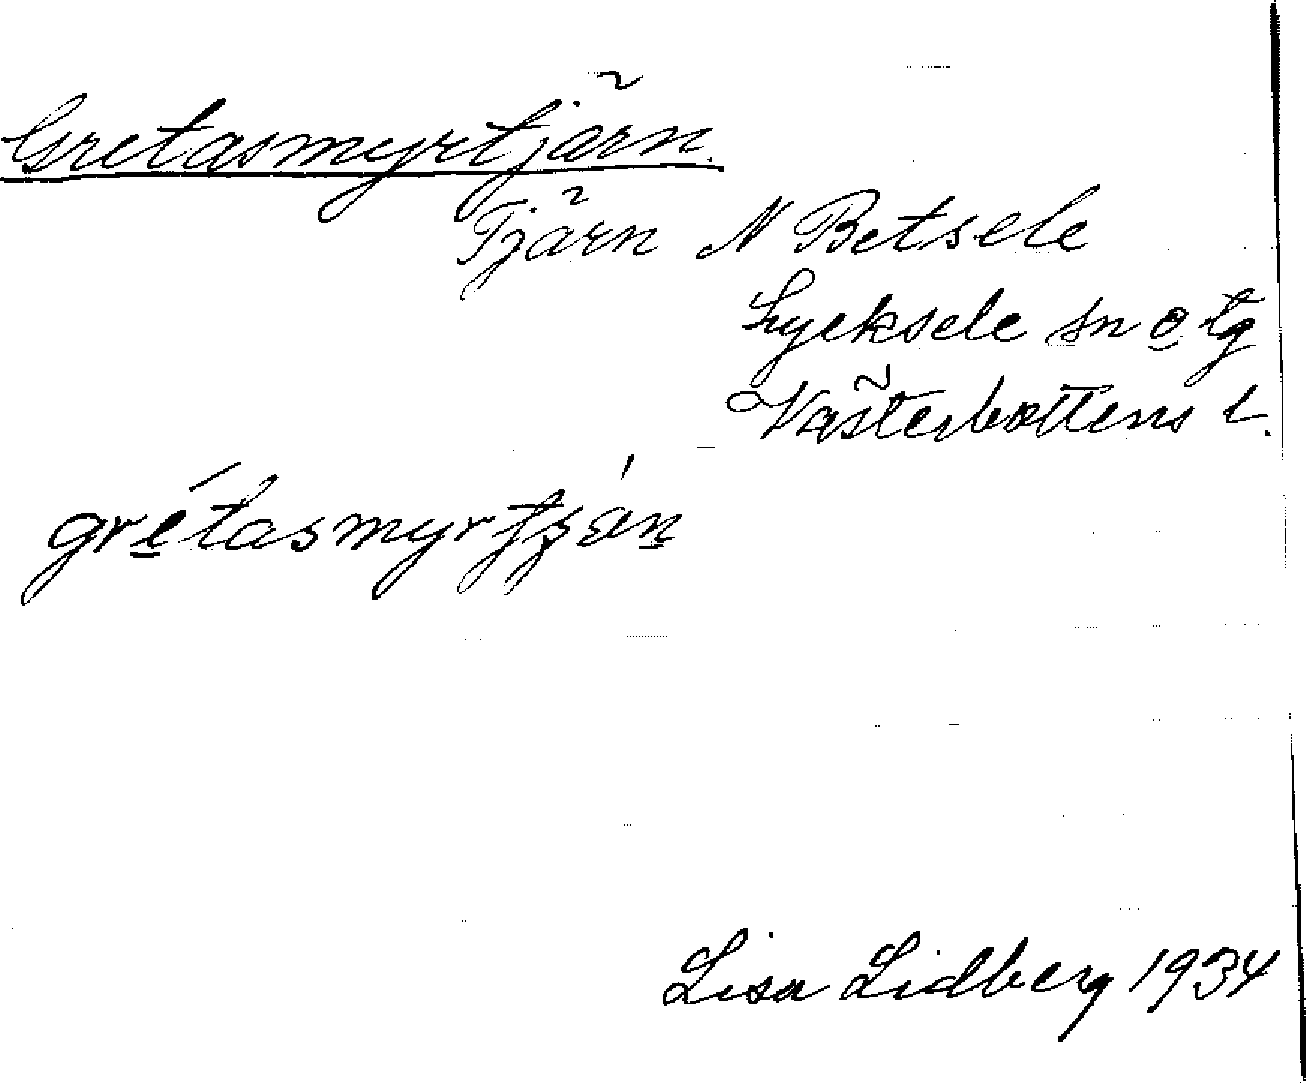 Gretasmyrtjärn.
Tjärn N Betsele
Lycksele sn o tg
Västerbottens l.
Lisa Lidberg 1934